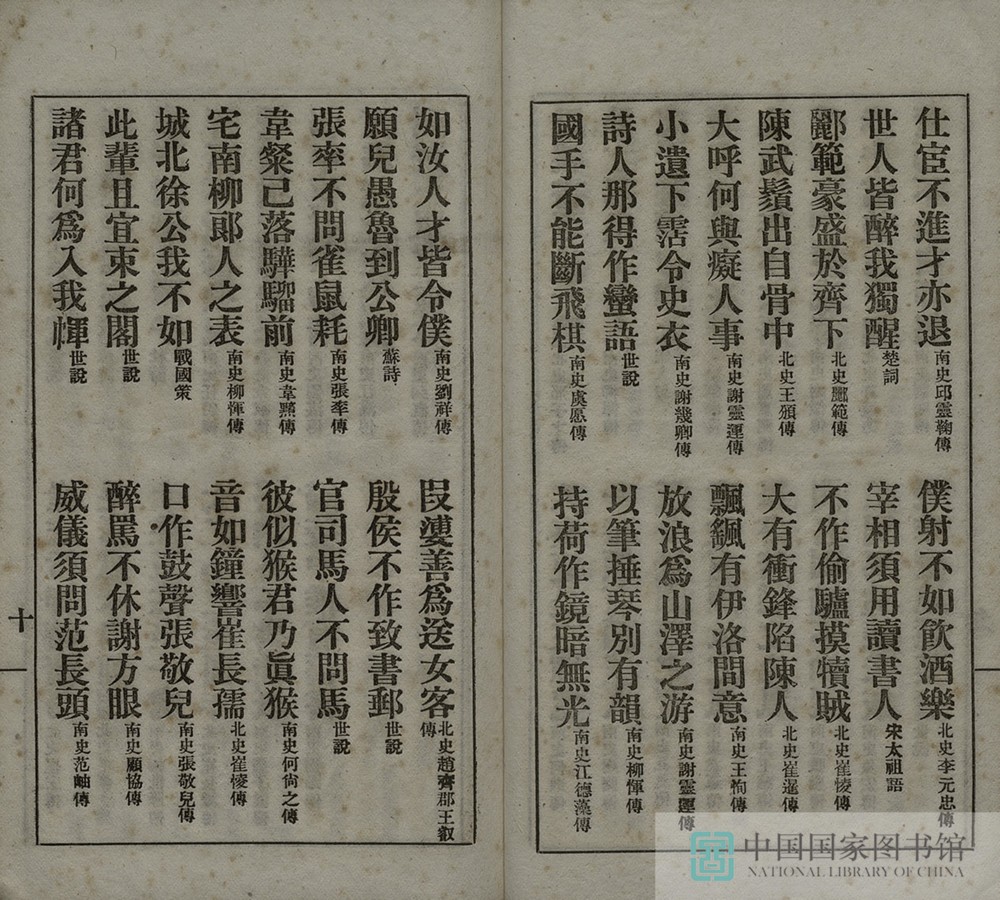 仕宦不進才亦退 南史邱靈鞠傳
僕射不如飲酒樂 北史李元忠傳
世人皆醉我獨醒 楚詞
宰相須用讀書人 宋太祖語
酈範豪盛於齊下 北史酈範傳
不作偷驢摸犢賊 北史崔㥄傳
陳武鬚出自骨中 北史王頒傳
大有衝鋒陷陳人 北史崔暹傳
大呼何與癡人事 南史謝靈運傳
飄飖有伊洛間意 南史王恂傳
小遺下霑令史衣 南史謝幾卿傳
放浪爲山澤之游 南史謝靈運傳
詩人那得作蠻語 世說
以筆捶琴別有韻 南史柳惲傳
國手不能斷飛棋 南史虞愿傳
持荷作鏡暗無光 南史江德藻傳
如汝人才皆令僕 南史劉祥傳
叚瓕善爲送女客 北史趙齊郡王叡傳
願兒愚魯到公卿 蘇詩
殷侯不作致書郵 世說
張率不問雀鼠耗 南史張率傳
官司馬人不問馬 世說
韋粲已落驊騮前 南史韋黯傳
彼似猴君乃眞猴 南史何尙之傳
宅南柳郞人之表 南史柳惲傳
音如鐘響崔長孺 北史崔㥄傳
城北徐公我不如 戰國策
口作鼓聲張敬兒 南史張敬兒傳
此輩且宜束之閣 世說
醉罵不休謝方眼 南史顧協傳
諸君何爲入我㡓 世說
威儀須問范長頭 南史范岫傳
十
中国国家图书馆
NATIONAL LIBRARY OF CHINA